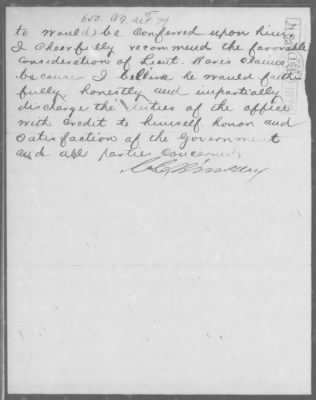 to would be conferred upon him
I cheerfully recommend the favorable
consideration of Lieut. Ware's claims
because I believe he would faith
fully, honestly and impartially
discharge the duties of the office
with credit to himself honor and
satisfaction of the Government
and all parties concerned